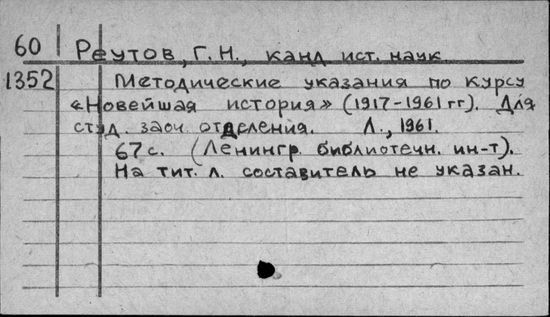 60 Реутов, Г. Н., канд. ист. наук.
1352 Методические указания по курсу
«Новейшая история» (1917-1961 гг). Для
студ. заоч. отделения. Л., 1961.
67 с. (Ленингр. библиотечн. ин-т).
На тит. л. составитель не указан.